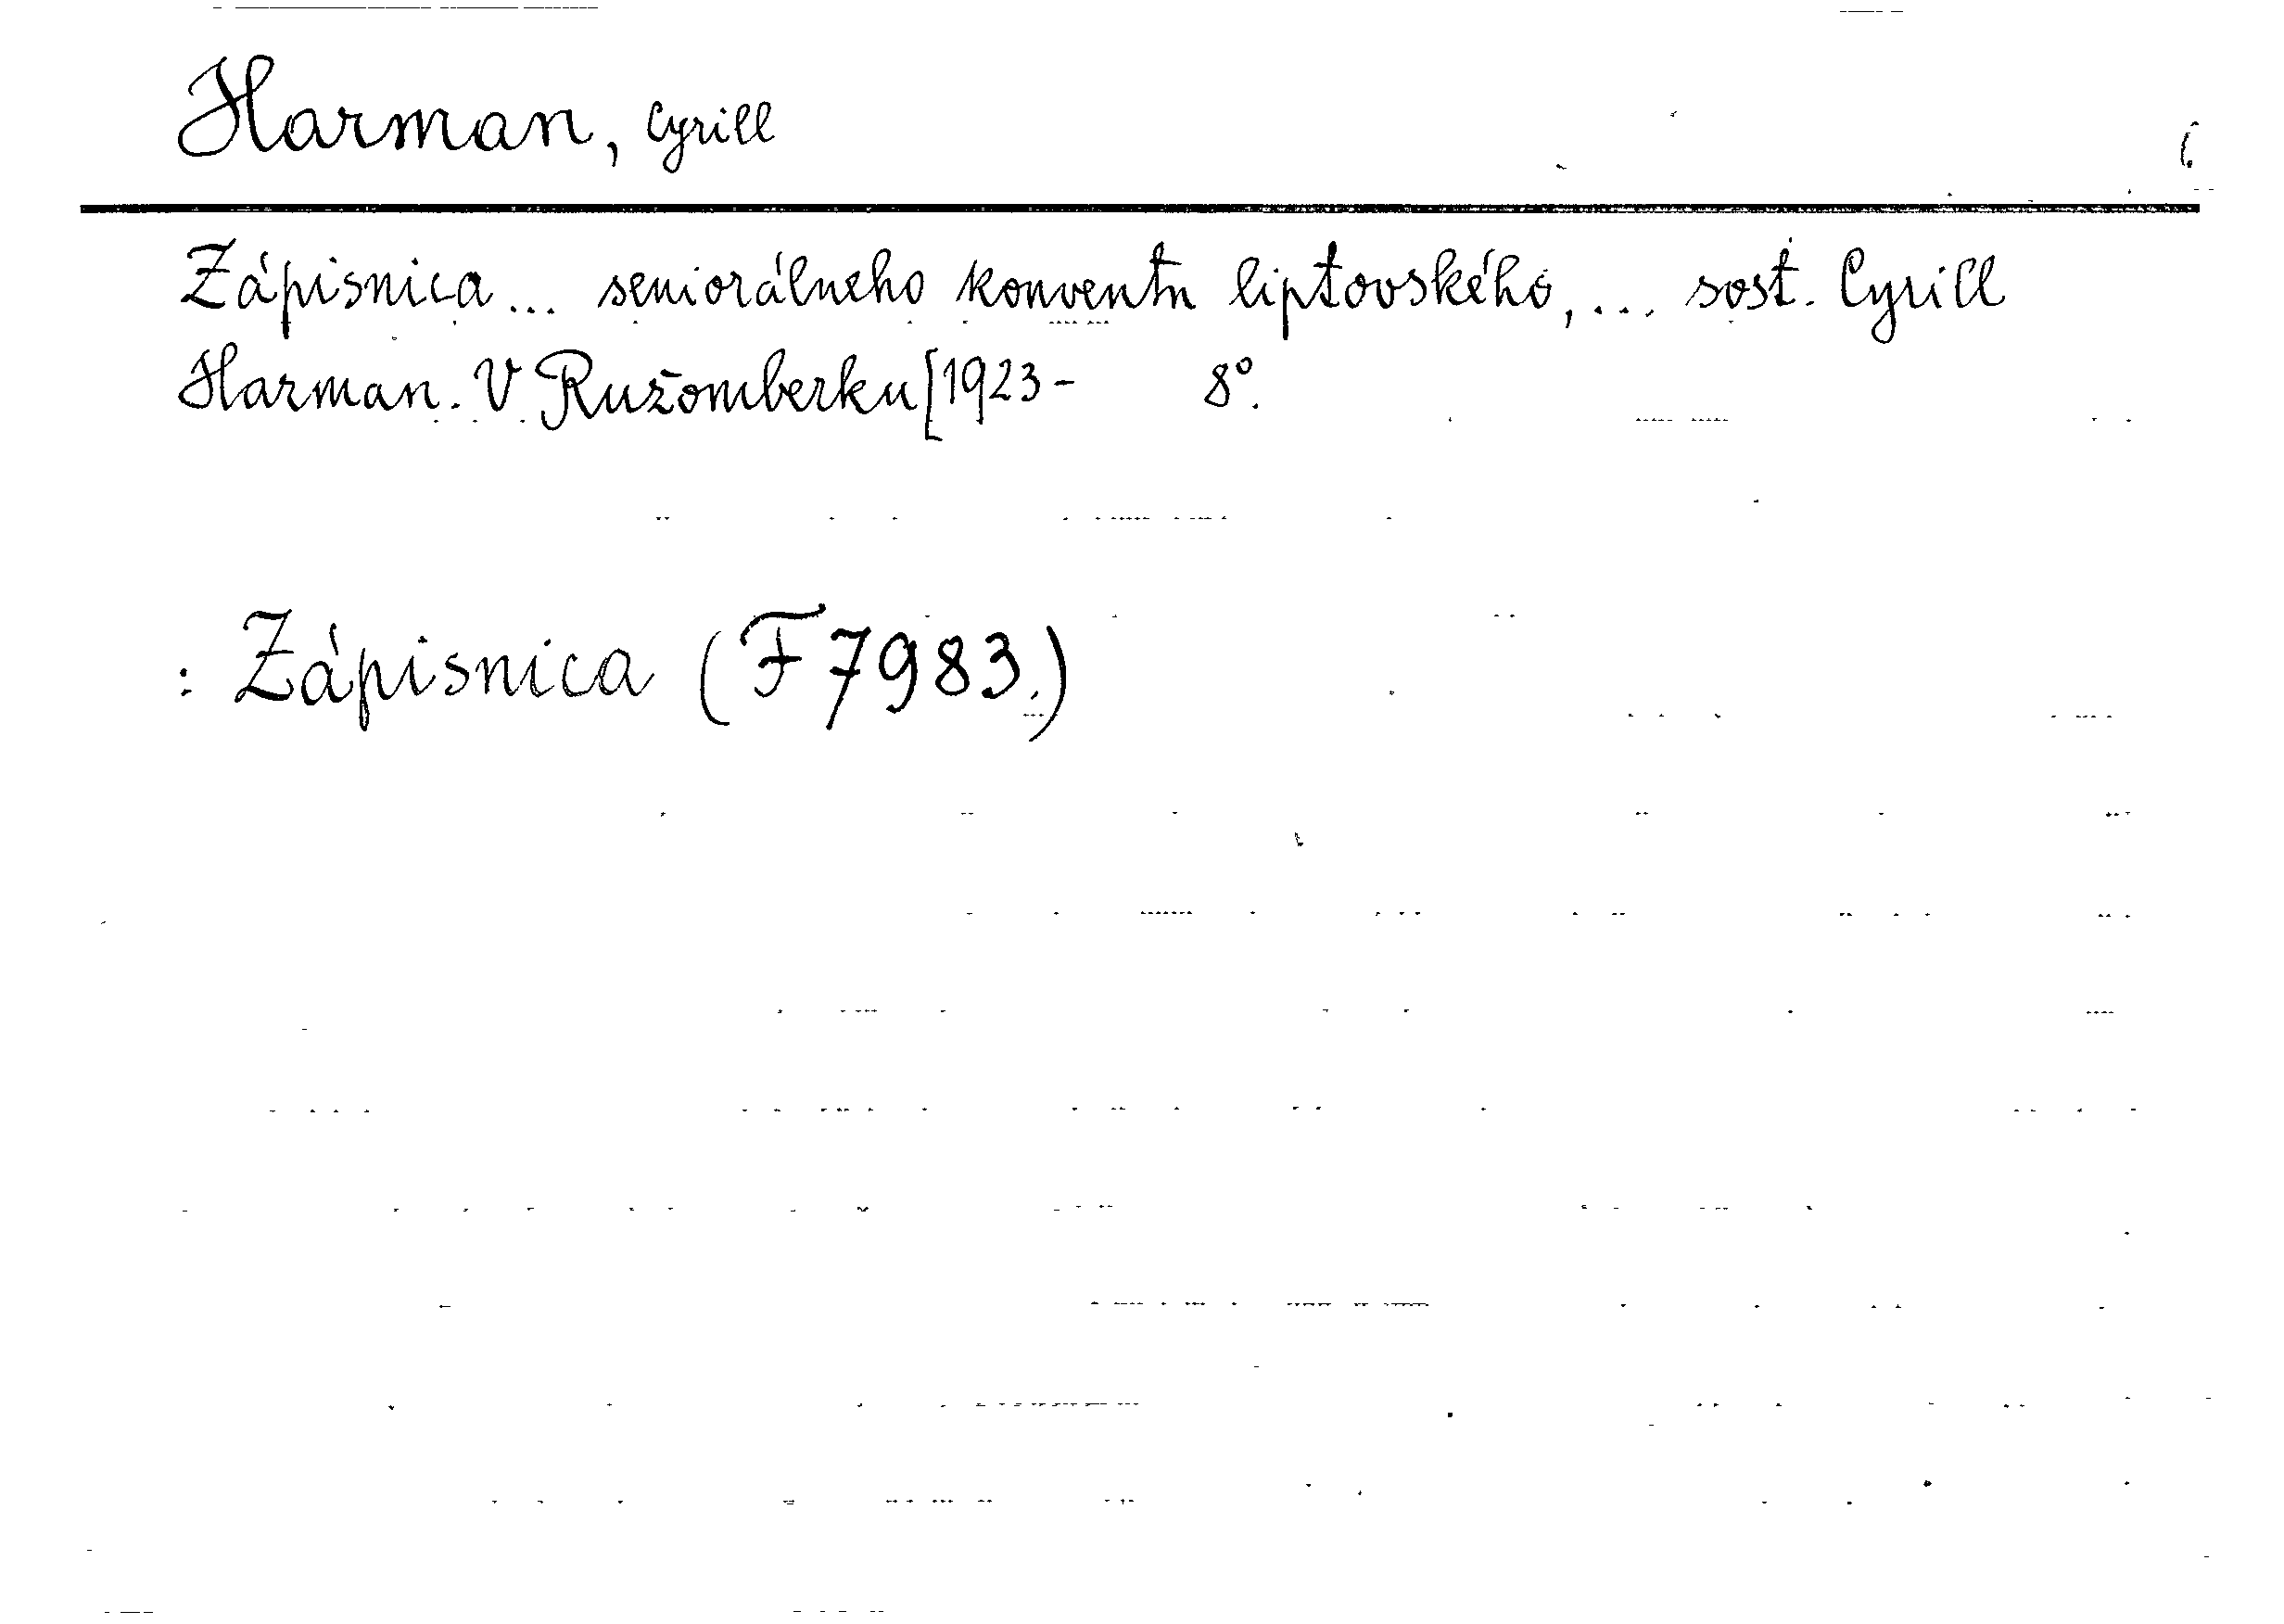 Harman, Cyrill
Zápisnica... seniorálneho konventu liptovského, ... sost. Cyrill
Harman. V Ružomberku [1923- 8°.
: Zápisnica (F7983.)